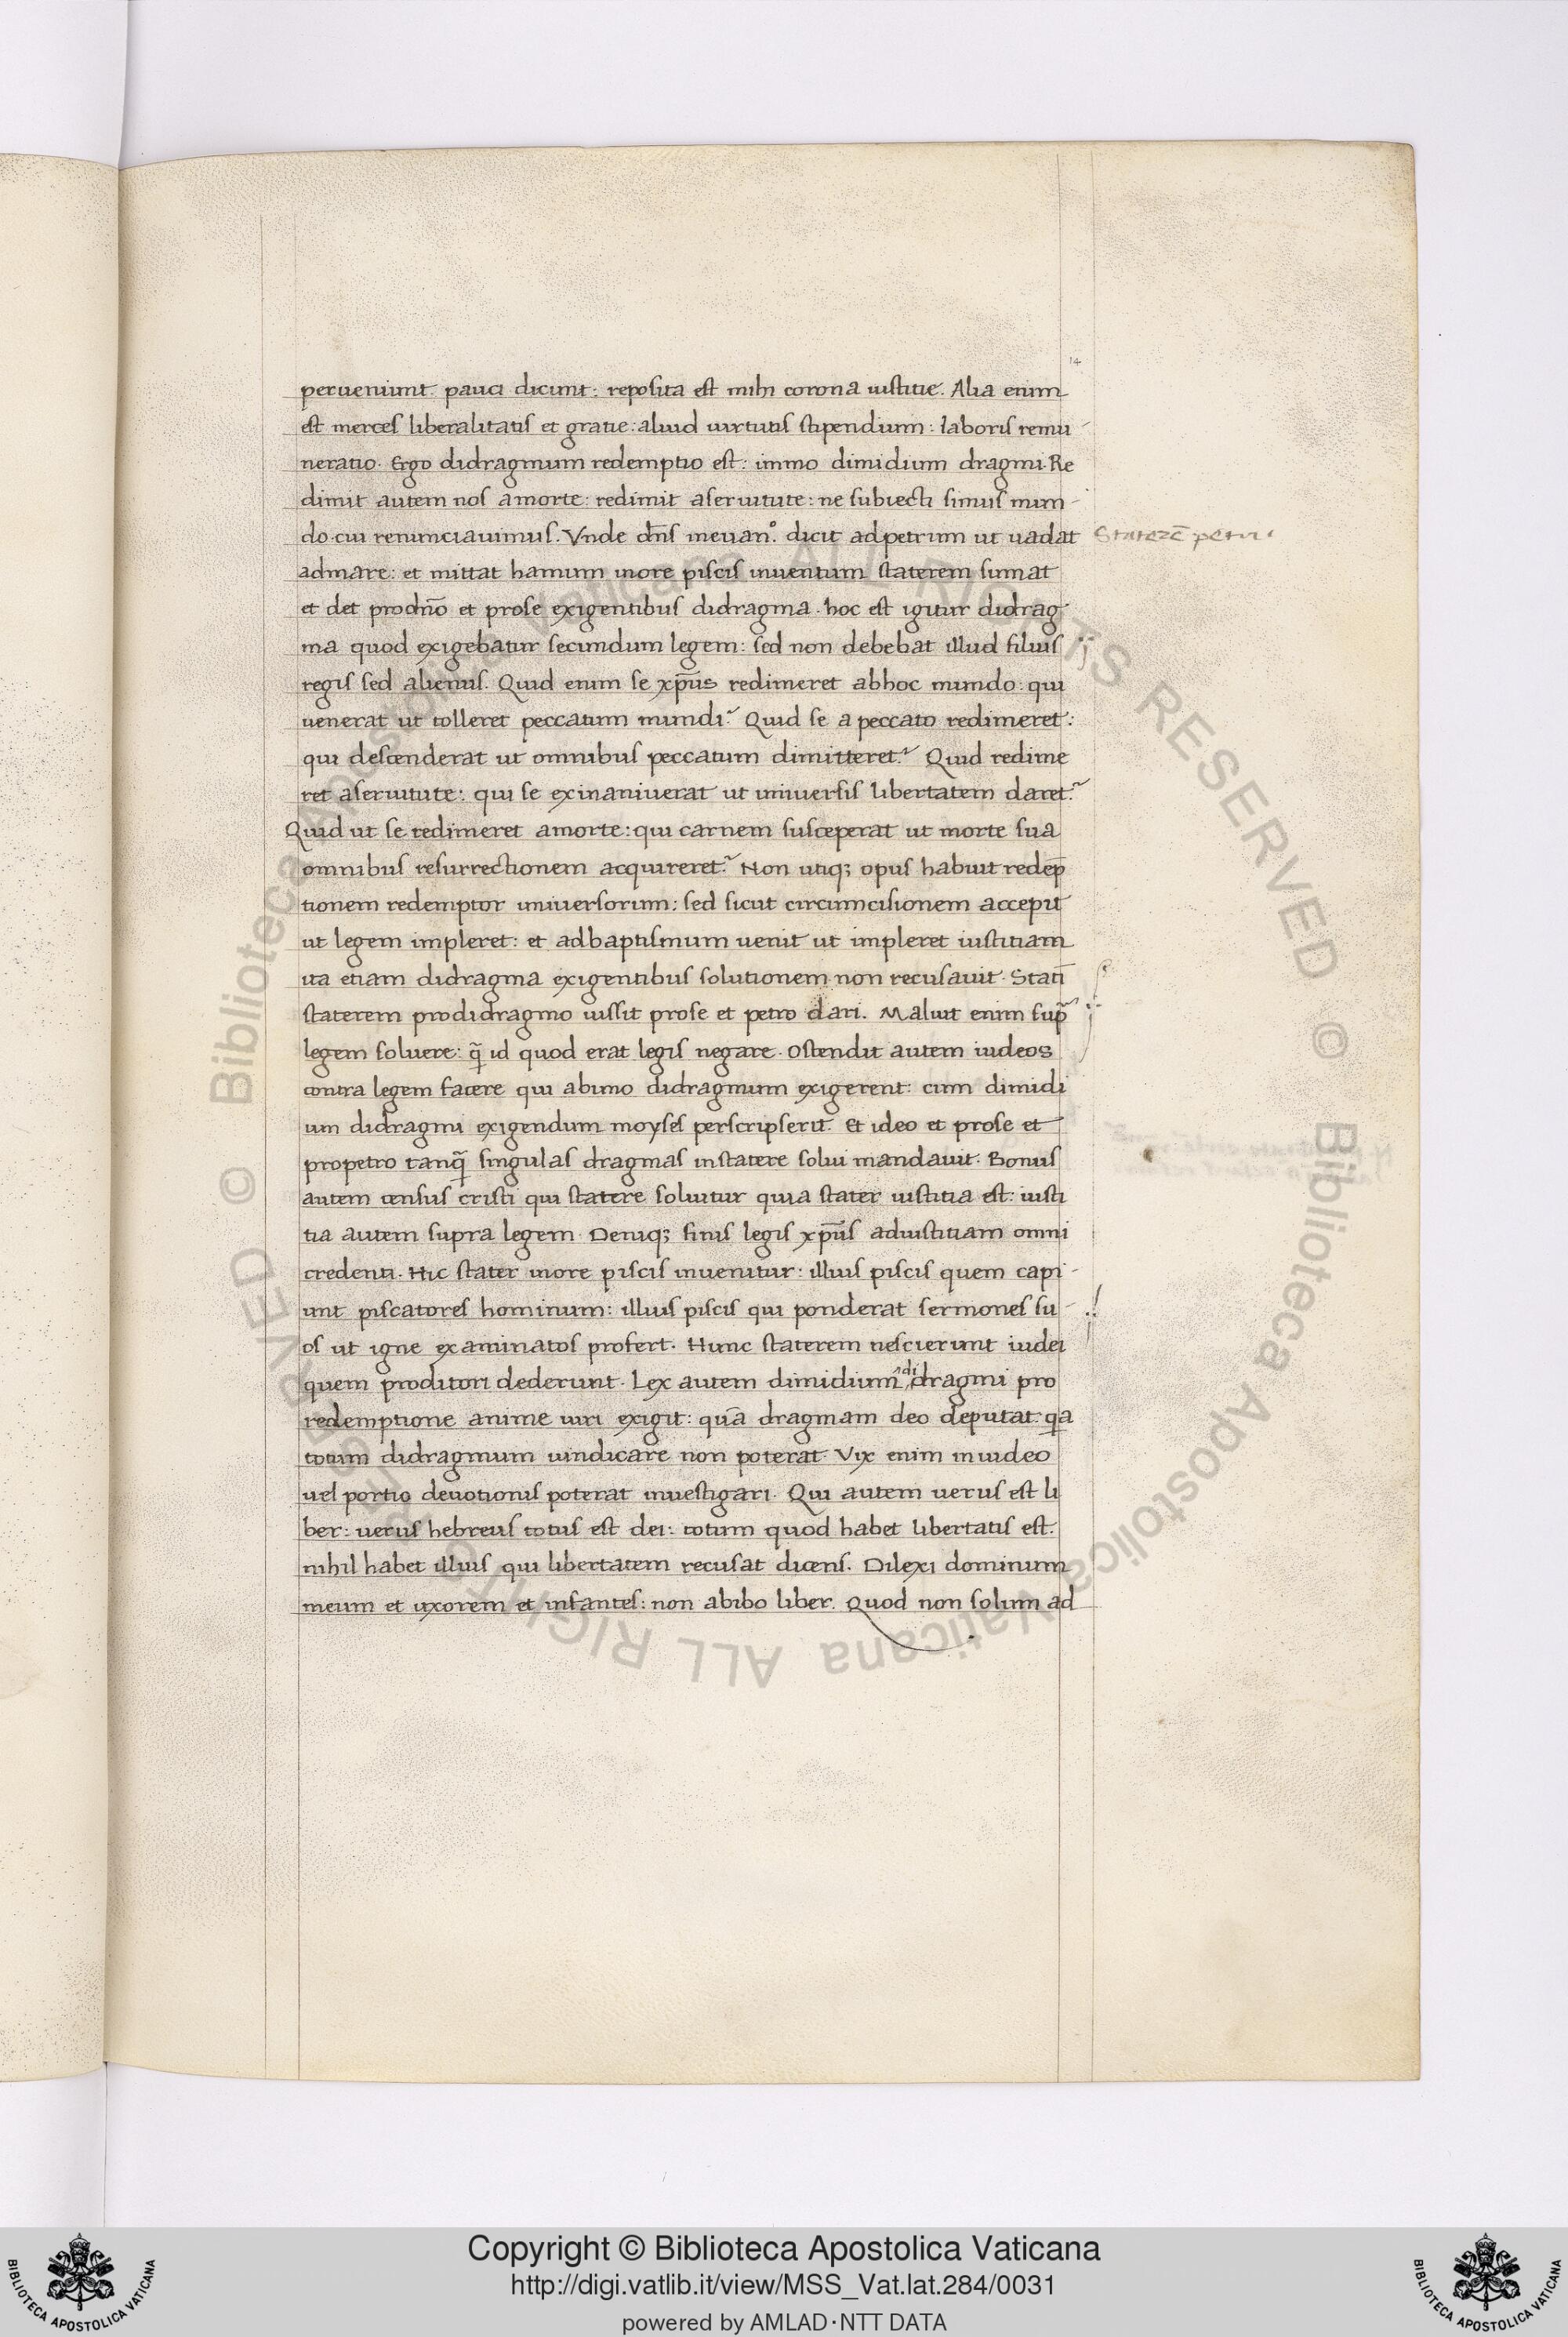 14
perueniunt. pauci dicunt: reposita est mihi corona iustitie. Alia enim
est merces liberalitatis et gratie: aliud uirtutis stipendium: laboris remu-
neratio. Ergo didragmum redemptio est: immo dimidium dragmi. Re
dimit autem nos amorte: redimit aseruitute: ne subiecti simus mun-
do. cui renunciauimus. Vnde dn̄s ineuan.º dicit adpetrum ut uadat
Staterē petri
admare: et mittat hamum inore piscis inuentum staterem sumat
et det prodn̄o et prose exigentibus didragma. hoc est igitur didrag-
ma quod exigebatur secundum legem: sed non debebat illud filius
regis sed alienus. Quid enim se xp̄us redimeret abhoc mundo: qui
uenerat ut tolleret peccatum mundi? Quid se a peccato redimeret:
qui descenderat ut omnibus peccatum dimitteret? Quid redime
ret aseruitute: qui se exinaniuerat ut uniuersis libertatem daret?
Quid ut se redimeret amorte: qui carnem susceperat ut morte sua
omnibus resurrectionem acquireret? Non utiq; opus habuit redēp
tionem redemptor uniuersorum: sed sicut circumcisionem accepit
ut legem impleret: et adbaptismum uenit ut impleret iustitiam
ita etiam didragma exigentibus solutionem non recusauit. Stati̅
staterem prodidragmo iussit prose et petro dari. Maluit enim sup̄
legem soluere: q̄ id quod erat legis negare. Ostendit autem iudeos
contra legem facere qui abuno didragmum exigerent: cum dimidi
um didragmi exigendum moyses perscripserit. Et ideo et prose et
propetro tanq̄ singulas dragmas instatere solui mandauit. Bonus
autem census cristi qui statere soluitur quia stater iustitia est: iusti
tia autem supra legem. Deniq; finis legis xp̄us adiustitiam omni
credenti. Hic stater inore piscis inuenitur: illius piscis quem capi-
unt piscatores hominum: illius piscis qui ponderat sermones su-
os ut igne examinatos profert. Hunc staterem nescierunt iudei
quem proditori dederunt. Lex autem dimidium didragmi pro
redemptione anime uiri exigit: quā dragmam deo deputat. q̄a
totum didragmum uindicare non poterat. Vix enim iniudeo
uel portio deuotionis poterat inuestigari. Qui autem uerus est li
ber: uerus hebreus totus est dei: totum quod habet libertatis est.
nihil habet illius qui libertatem recusat dicens. Dilexi dominum
meum et uxorem et infantes: non abibo liber. Quod non solum ad
© Biblioteca Apostolica Vaticana ALL RIGHTS RESERVED © Biblioteca Apostolica Vaticana ALL RIGHTS RESERVED
Copyright © Biblioteca Apostolica Vaticana
http://digi.vatlib.it/view/MSS_Vat.lat.284/0031
powered by AMLAD·NTT DATA
BIBLIOTECA APOSTOLICA VATICANA
BIBLIOTECA APOSTOLICA VATICANA